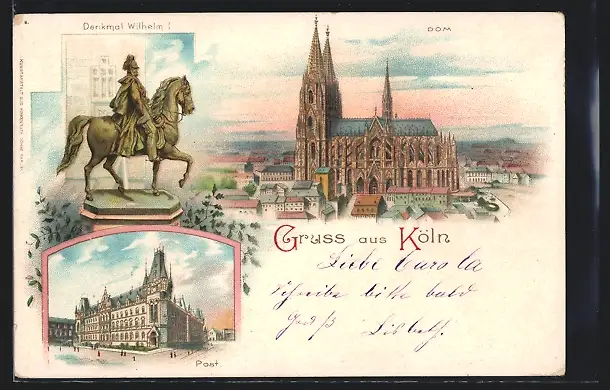 Denkmal Wilhelm I
DOM
Gruss aus Köln
Liebe Carola
Schreibe bitte bald
Gruß
Post.